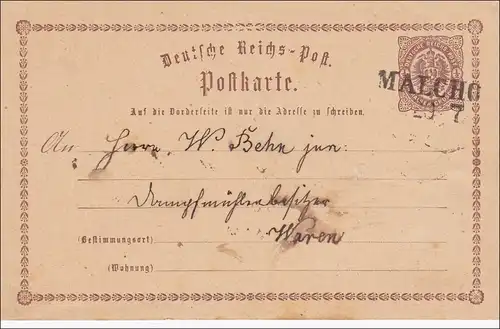 Deutsche Reichs-Post.
Postkarte.
MALCHO
Auf die Vorderseite ist nur die Adresse zu schreiben.
An Herrn W. Behn jun:
Dampfmühlenbesitzer
Waren
(Bestimmungsort)
(Wohnung)